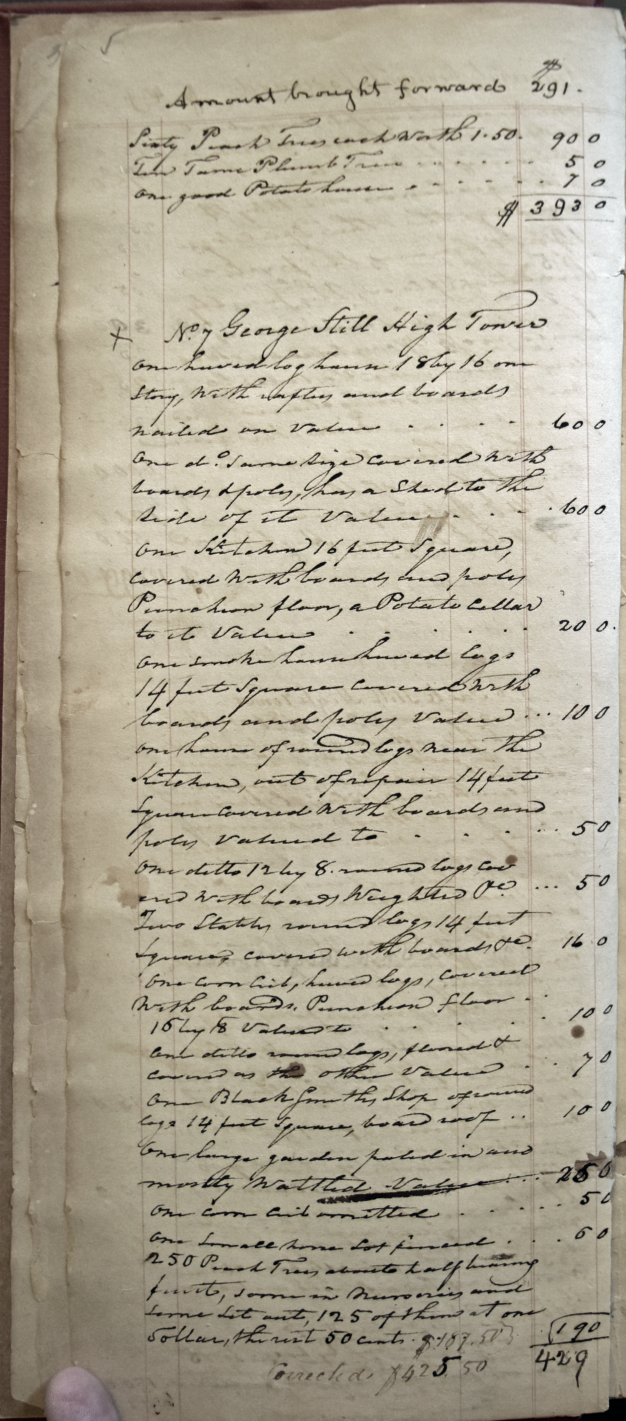 5
Amount brought forward $ 291.
Sixty Peach Trees each Worth 1.50. 90 0
Ten Tame Plumb Trees 5 0
One good Potato house 7 0
$ 393 0
+ No. 7 George Still High Tower
One hewed log house 18 by 16 one
Story, With rafters and boards
nailed on Value 60 0
One do. Same Size Covered With
boards & poles, has a Shed to the
Side of it Value 60 0
One Kitchen 16 feet Square,
Covered With boards and poles
Puncheon floor, a Potato Cellar
to it Value 20 0.
One smoke house hewed logs
14 feet Square Covered With
boards and poles Value 10 0
One house of round logs near the
Kitchen, out of repair 14 feet
Square Covered With boards and
poles Valued to 5 0
One ditto 12 by 8. round logs cov
ered With boards Weighted &c. 5 0
Two Stables round logs 14 feet
Square, covered with boards &c. 16 0
One corn Crib, hewed logs, Covered
With boards. Puncheon floor
16 by 8 Value to 10 0
One ditto round logs, floored &
covered as the other Value 7 0
One Black Smiths Shop of round
logs 14 feet Square, board roof 10 0
One large garden paled in and
mostly Wattled Value 25 0
One corn Crib omitted 5 0
One Small horse Lot fenced 6 0
250 Peach Trees about half bearing
fruit, some in Nurseries and
some Set out, 125 of them at one
Dollar, the rest 50 cents. $187.50 190
Corrected $425 50 429